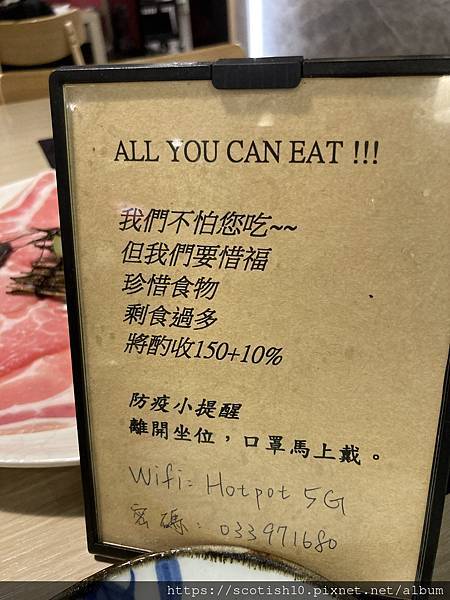 ALL YOU CAN EAT !!!
我們不怕您吃~~
但我們要惜福
珍惜食物
剩食過多
將酌收150+10%
防疫小提醒
離開坐位，口罩馬上戴。
Wifi: Hotpot 5G
密碼: 033971680
https://scotish10.pixnet.net/album